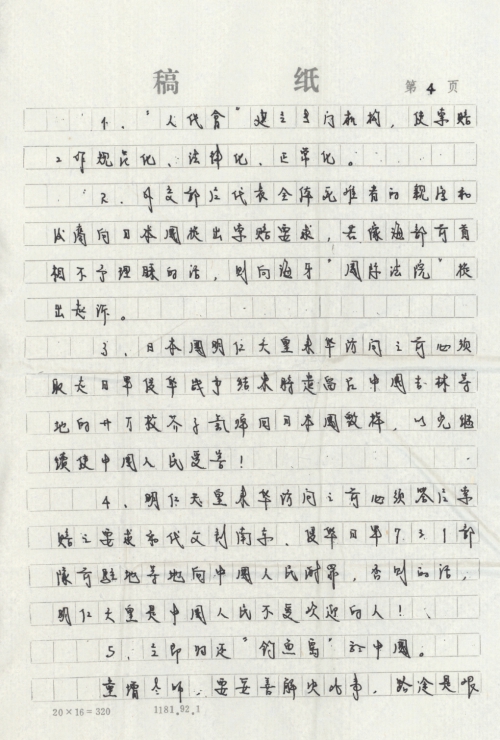 稿 纸
第 4 页
1、"人代会"建立专门机构，使索赔
工作规范化、法律化、正常化。
2、外交部应代表全体死难者的亲属和
伤者向日本国提出索赔要求，若像海部前首
相不予理睬的话，则向海牙"国际法院"提
出起诉。
3、日本国明仁天皇来华访问之前必须
取走日军侵华战争结束时遗留在中国吉林等
地的廿万枚芥子气弹回日本国数掉，以免继
续使中国人民受害！
4、明仁天皇来华访问之前必须答应索
赔之要求和代文到南京、侵华日军7.3.1部
队前驻地等地向中国人民谢罪，否则的话，
明仁天皇是中国人民不受欢迎的人！
5、立即归还"钓鱼岛"给中国。
重增冬昨，要妥善解决此事，路途是艰
20×16=320 1181.92.1